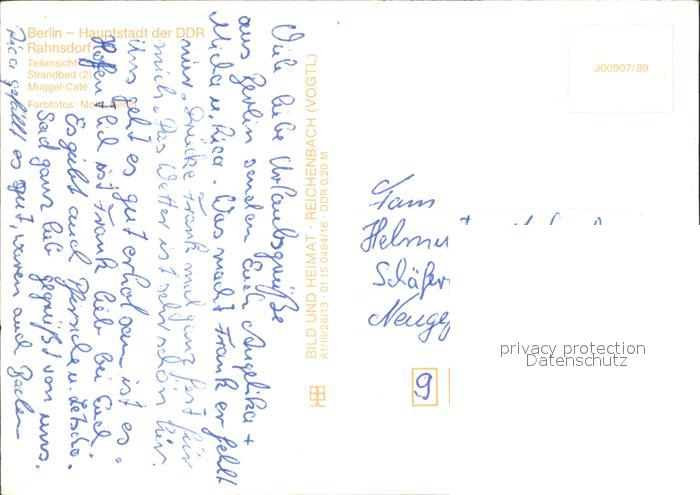 Berlin – Hauptstadt der DDR
Rahnsdorf
Teilansicht
Strandbad (2)
Müggel-Café
Farbfotos:
BILD UND HEIMAT · REICHENBACH (VOGTL)
A1/III/26/13 · 01 15 0484/16 · DDR 0,20 M
J00907/89
Viele liebe Urlaubsgrüße
aus Berlin senden Euch Angelika +
Micha u. Rica. Was macht Frank er fehlt
mir. Drücke Frank mal ganz fest für
mich. Das Wetter ist sehr schön hier.
uns geht es gut erholsam ist es.
Hoffentlich ist Frank lieb bei Euch.
Es gibt auch Pfirsiche u. Letscho.
Seid ganz lieb gegrüßt von uns.
Rica gefällt es gut, waren auch Baden
Fam
Helmu
Schäfer
Neuge
9
privacy protection
Datenschutz